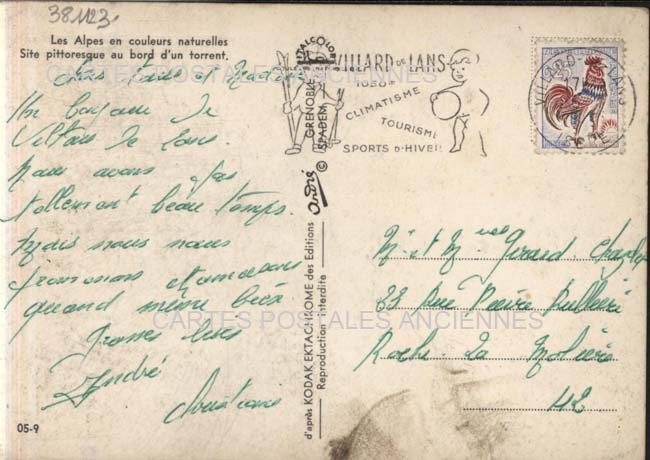 38123
Les Alpes en couleurs naturelles
Site pittoresque au bord d'un torrent.
CARTES POSTALES ANCIENNES
Un bonjour de
Villars de Lans
Nous avons pas
tellement beau temps.
Mais nous nous
promenons et amusons
quand même bien
Grosses bises
André
Christiane
05-9
d'après KODAK EKTACHROME des Editions
Reproduction interdite
André
©
GRENOBLE
SPADEM
VILLARD DE LANS
1050 M
CLIMATISME
TOURISME
SPORTS D'HIVER
VILLARD-D-LANS
17
ISERE
Mr et Mme Girard Charles
33 Rue Pierre
Roche-La Molière
42
CARTES POSTALES ANCIENNES